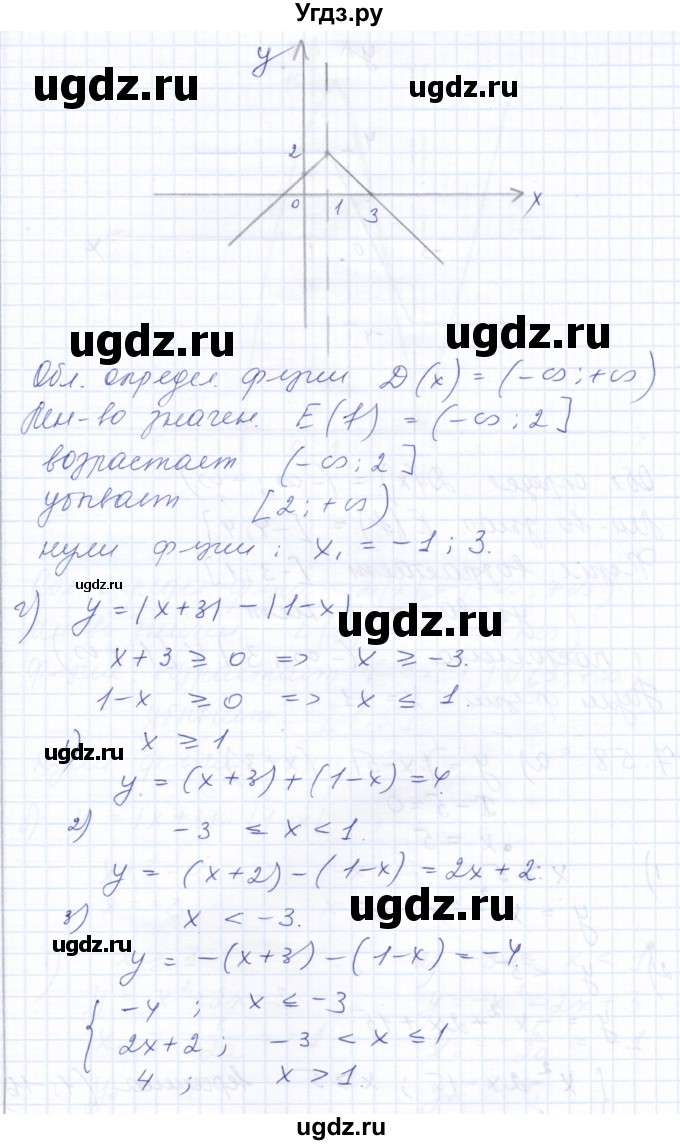 Угдз.ру
ugdz.ru
ugdz.ru
y
2
0 1 3 x
ugdz.ru
ugdz.ru
Обл. определ. ф-ции D(x) = (-∞; +∞)
Мн-во значен. E(f) = (-∞; 2]
возрастает (-∞; 2]
убывает [2; +∞)
нули ф-ции: x₁ = -1; 3.
ugdz.ru
г) y = |x+3| - |1-x|
ugdz.ru
x+3 ≥ 0 => x ≥ -3.
1-x ≥ 0 => x ≤ 1.
ugdz.ru
1) x ≥ 1
y = (x+3) + (1-x) = 4.
2) -3 ≤ x < 1.
y = (x+2) - (1-x) = 2x+2.
ugdz.ru
3) x < -3.
ugdz.ru
y = -(x+3) - (1-x) = -4.
{ -4; x ≤ -3
2x+2; -3 < x ≤ 1
4; x > 1.
ugdz.ru
ugdz.ru